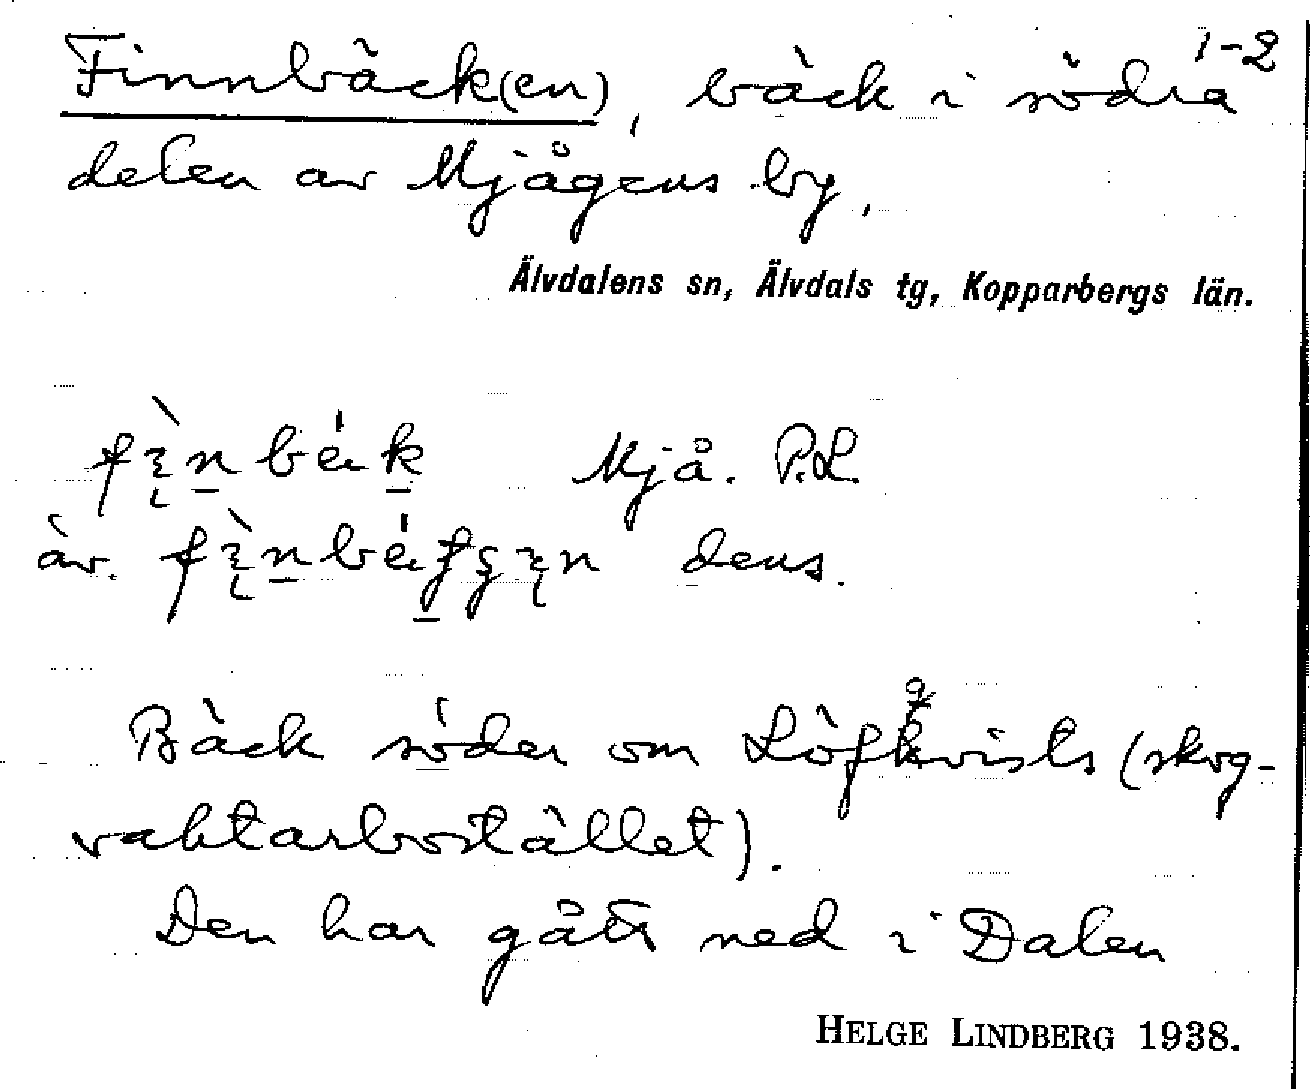 Finnbäck(en), bäck i södra 1-2
delen av Mjågens by,
Älvdalens sn, Älvdals tg, Kopparbergs län.
Mjå. P.L.
äv. dens.
Bäck söder om Löfkvists (skog-
vaktarbostället).
Den har gått ned i Dalen
HELGE LINDBERG 1938.